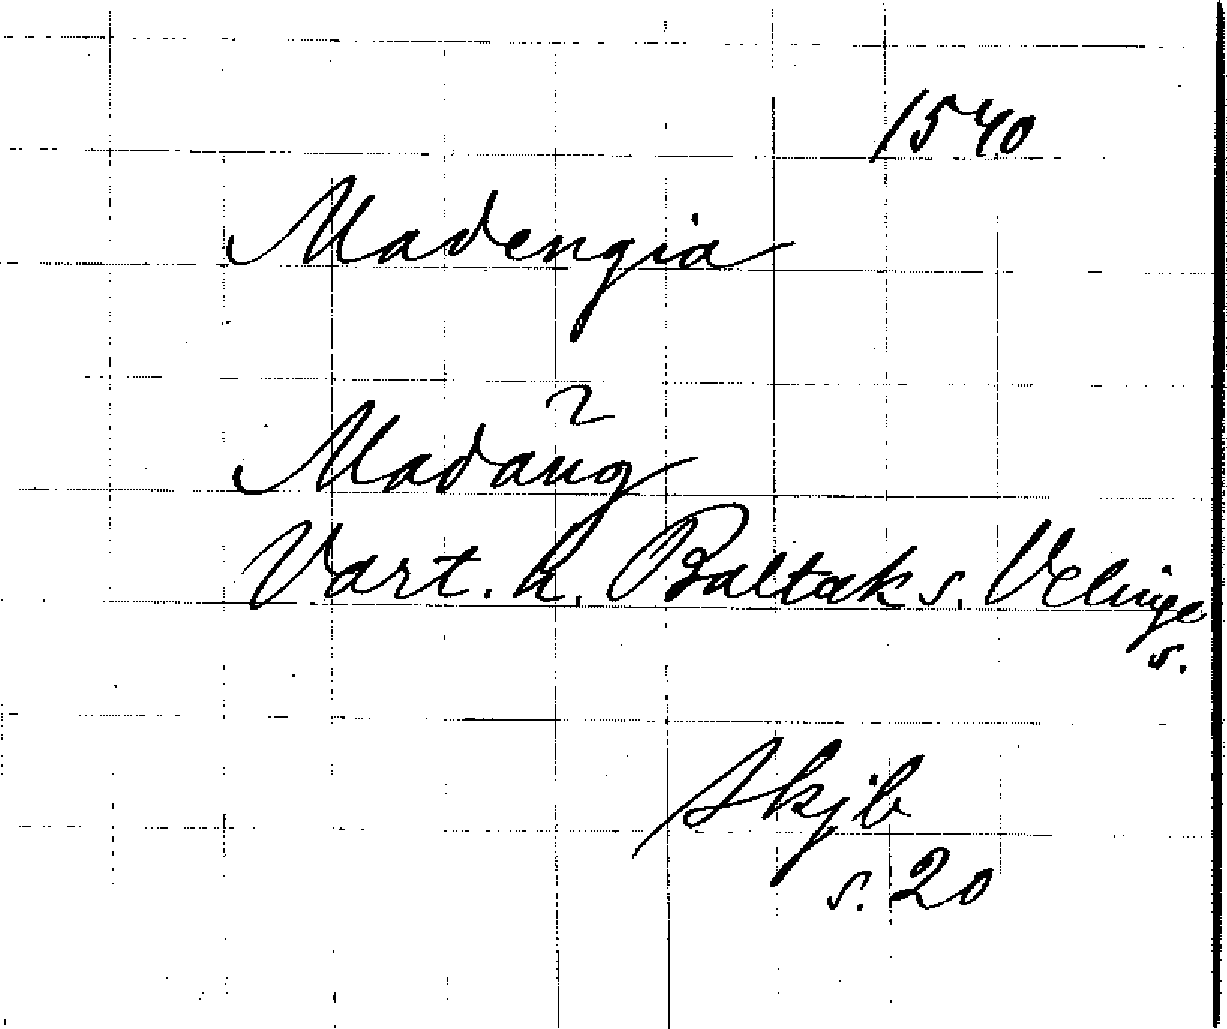 1540
Madengia
2
Madäng
Vart. h. Baltak s. Velinge
s.
Akjb
s. 20